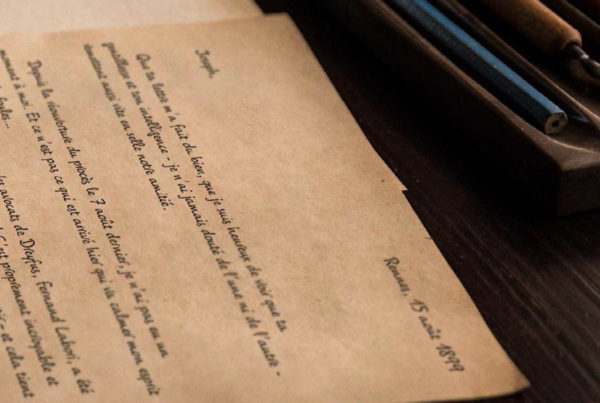 Rennes, 15 août 1899
Joseph,
Que ta lettre m'a fait du bien, que je suis heureux de voir que ta
gentillesse et ton intelligence - je n'ai jamais douté de l'une ni de l'autre -
remettent aussi vite en selle notre amitié.
Depuis la réouverture du procès le 7 août dernier, je n'ai pas eu un
moment à moi. Et ce n'est pas ce qui est arrivé hier qui va calmer mon esprit
avocats de Dreyfus, Fernand Labori, a été
C'est proprement incroyable et
- et cela tient